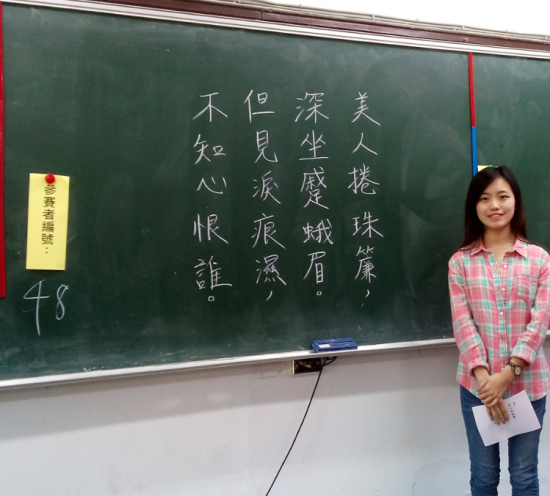 美人捲珠簾，
深坐蹙蛾眉。
但見淚痕濕，
不知心恨誰。
參賽者編號：
48